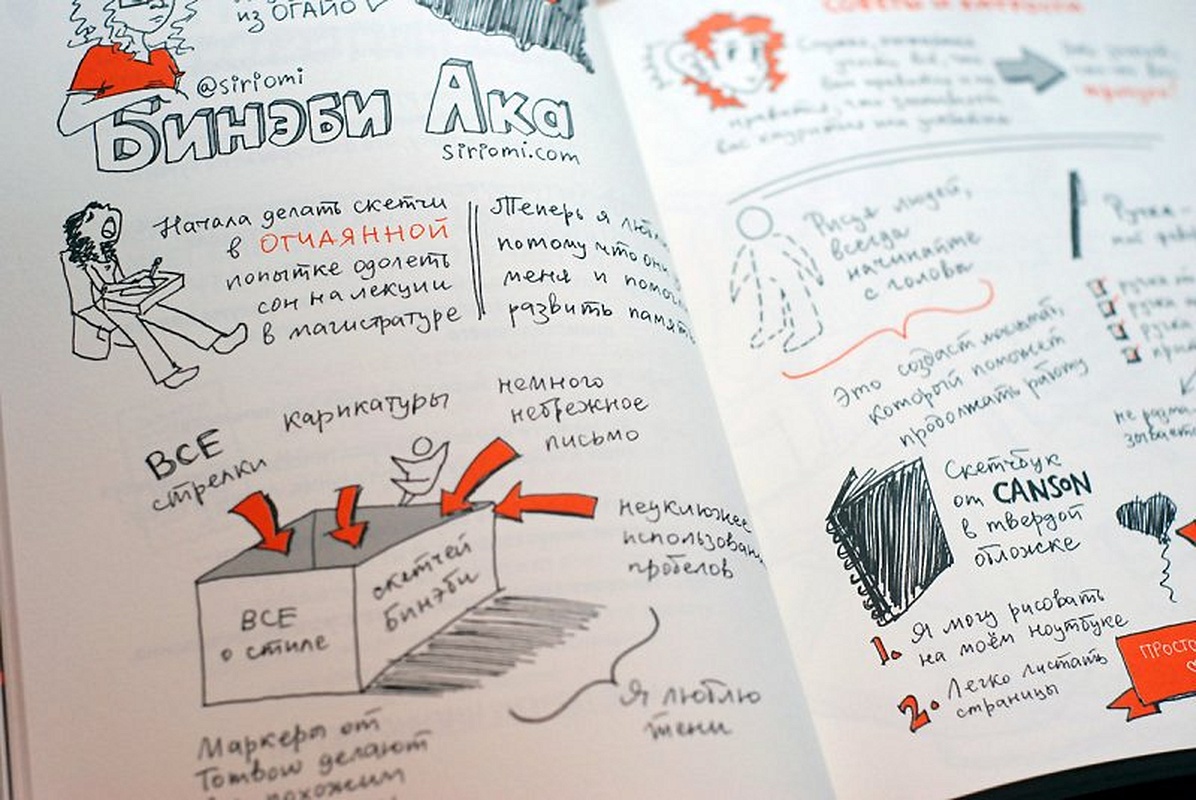 из ОГАЙО
@siriomi
Бинэби Ака
siriomi.com
Начала делать скетчи
в ОТЧАЯННОЙ
попытке одолеть
сон на лекции
в магистратуре
Теперь я
потому что они
меня и
развить
ВСЕ
стрелки
карикатуры
немного
небрежное
письмо
неуклюжее
пробелов
ВСЕ
о стиле
скетчей
Бинэби
Я люблю
тени
Маркеры от
делают
похожим
СОВЕТЫ И
Рисуя людей,
всегда
начинайте
с головы
Это создаст масштаб,
который поможет
продолжать работу
Ручка
ручка
ручка
ручка
не разма
Скетчбук
от CANSON
в твердой
обложке
1. Я могу рисовать
на моём ноутбуке
2. Легко листать
страницы
ПРОСТО